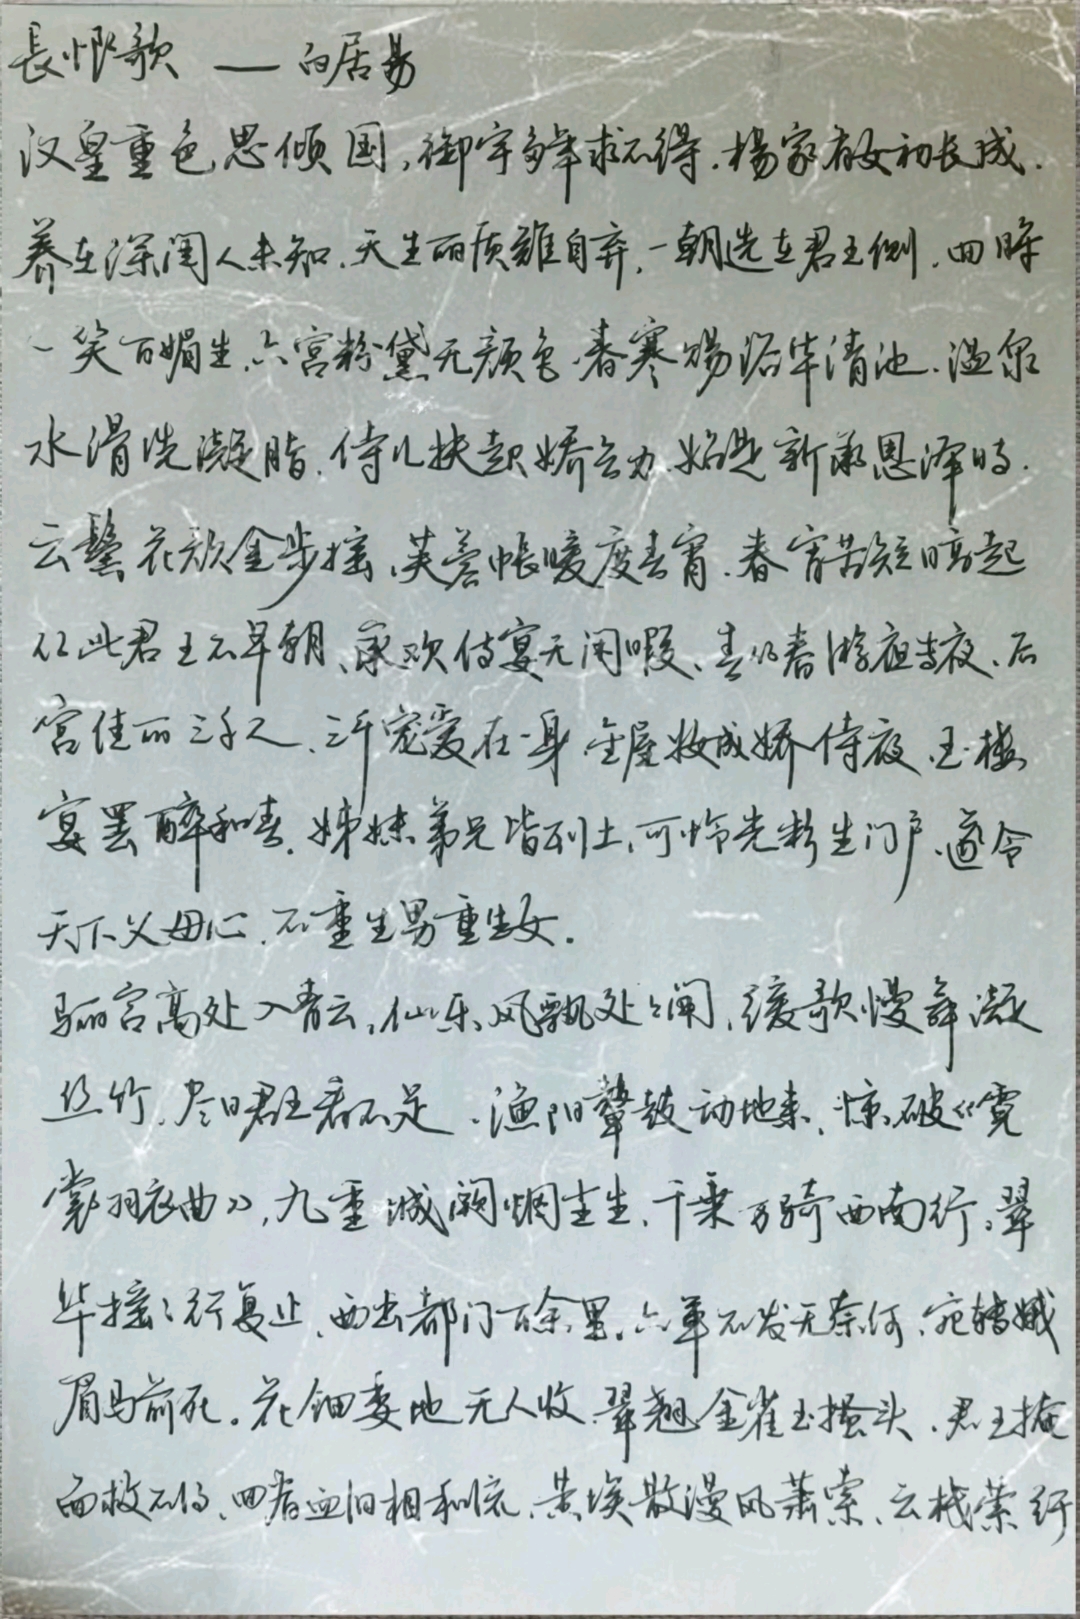 長恨歌 —— 白居易
汉皇重色思倾国,御宇多年求不得.杨家有女初长成.
养在深闺人未知.天生丽质難自弃,一朝选在君王侧.回眸
一笑百媚生.六宫粉黛无颜色.春寒赐浴华清池.温泉
水滑洗凝脂.侍儿扶起娇无力.始是新承恩泽时.
云鬓花颜金步摇.芙蓉帐暖度春宵.春宵苦短日高起
从此君王不早朝、承欢侍宴无闲暇、春从春游夜专夜、后
宫佳丽三千人、三千宠爱在一身.金屋妆成娇侍夜.玉楼
宴罢醉和春.姊妹弟兄皆列土,可怜光彩生门户.遂令
天下父母心.不重生男重生女.
骊宫高处入青云,仙乐风飘处々闻,缓歌慢舞凝
丝竹.尽日君王看不足.渔阳鼙鼓动地来,惊破《霓
裳羽衣曲》,九重城阙烟尘生.千乘万骑西南行.翠
华摇々行复止、西出都门百余里.六军不发无奈何、宛转娥
眉马前死.花钿委地无人收.翠翘金雀玉搔头.君王掩
面救不得、回看血泪相和流.黄埃散漫风萧索、云栈萦纡